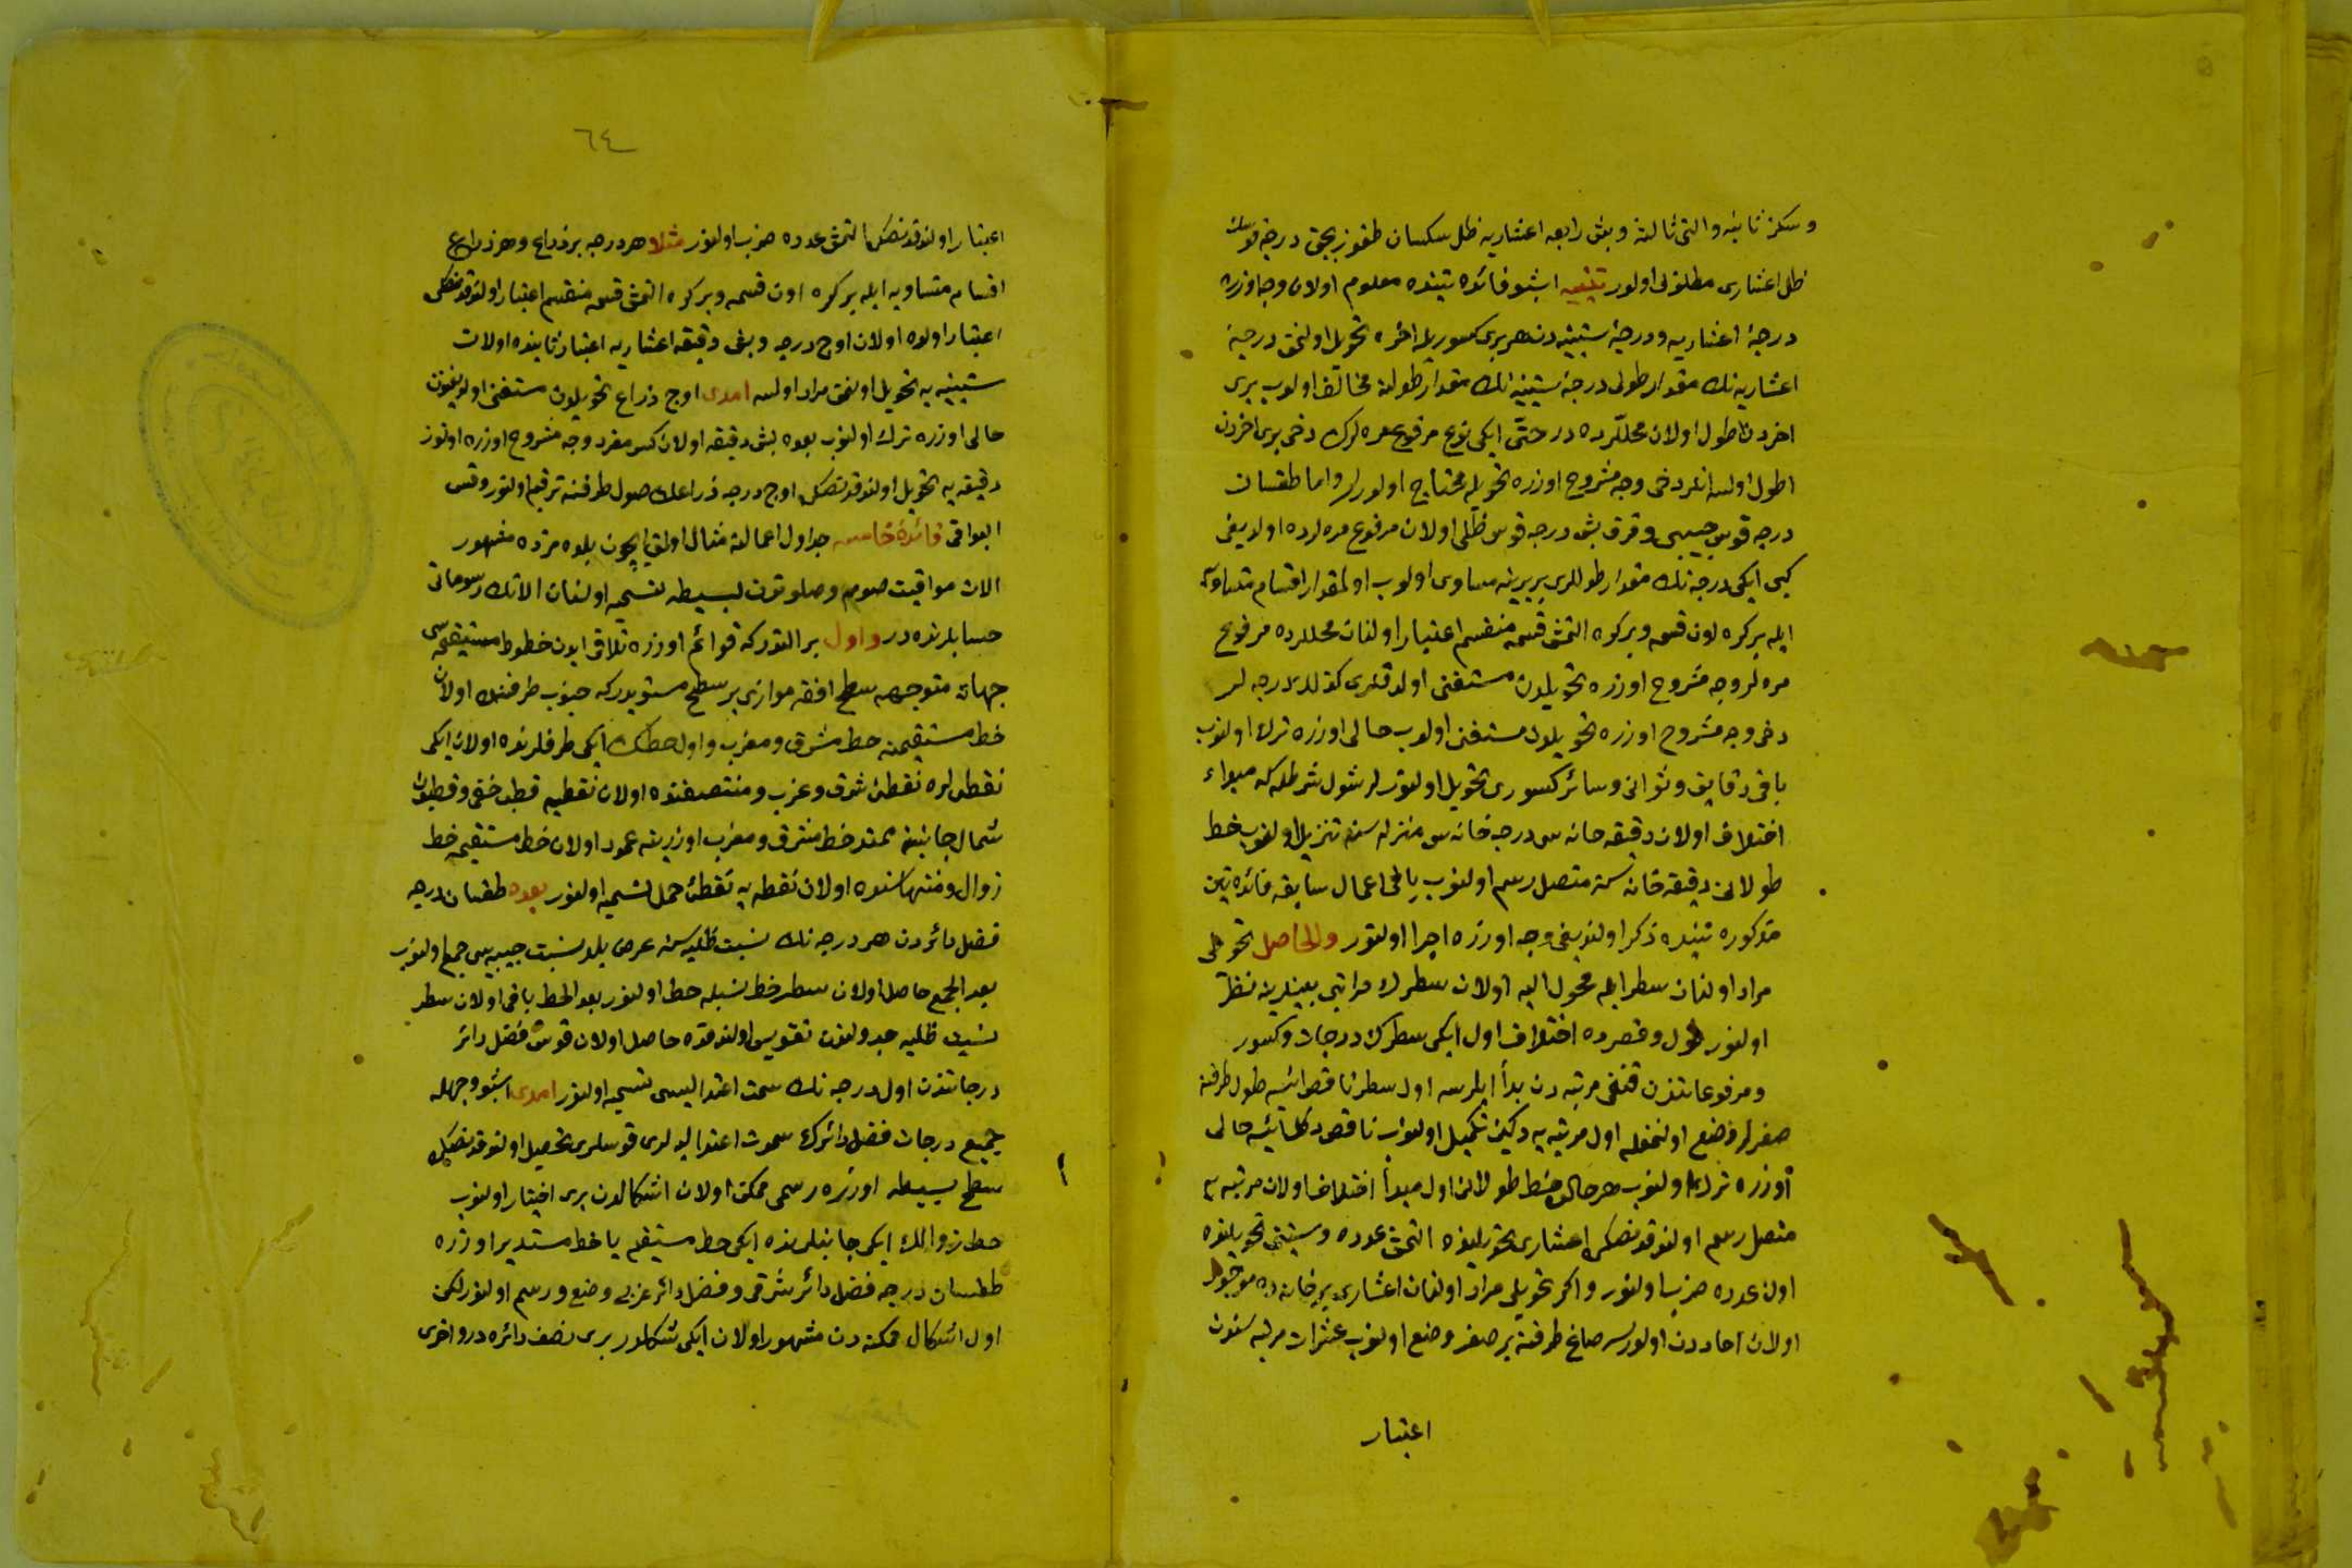 وسكز ثانيه والتى ثالثه وبش رابعه اعشاريه ظل سكسان طقوز بچق درجه قوسك
ظل اعشارى مطلوبى اولور تنبيه اشبو فائده تينده معلوم اولان وجه اوزره
درجهٔ اعشاريه ودرجهٔ ستينيه دن هر برى كسوريله اخره تحويل اولنمق درجهٔ
اعشاريه نك مقدار طولى درجهٔ ستينيه نك مقدار طولنه مخالف اولوب برى
اخردن اطول اولان محللرده در حتى ايكى نوع مرفوع مره لرك دخى برى اخردن
اطول اولسه انلر دخى وجه مشروح اوزره تحويله محتاج اولورلر واما طقسان
درجه قوس جيبى وقرق بش درجه قوس ظلى اولان مرفوع مره لرده اولديغى
كبى ايكى درجه نك مقدار طوللرى بربرينه مساوى اولوب اولمقدار اقسام متساويه
ايله بر كره اون قسمه وبر كره التمش قسمه منقسم اعتبار اولنان محللرده مرفوع
مره لر وجه مشروح اوزره تحويلدن مستغنى اولدقلرى كذلك درجه لر
دخى وجه مشروح اوزره تحويلدن مستغنى اولوب حالى اوزره ترك اولنوب
باقى دقايق وثوانى وسائر كسورى تحويل اولنور لر شول شرطله كه مبداء
اختلاف اولان دقيقه خانه سى درجه خانه سى منزله سنه تنزيل اولنوب خط
طولانى دقيقه خانه سنه متصل رسم اولنوب باقى اعمال سابقه فائده تين
مذكوره تينده ذكر اولنديغى وجه اوزره اجرا اولنور والحاصل تحويلى
مراد اولنان سطر ايله محول اليه اولان سطرك مراتبى بينلرينه نظر
اولنور طول وقصرده اختلاف اول ايكى سطرك درجات وكسور
ومرفوعاتندن قنغى مرتبه دن بدأ ايلرسه اول سطر ناقص ايسه طول طرفنه
صفرلر وضع اولنمغله اول مرتبه يه دكين تكميل اولنوب ناقص دكل ايسه حالى
اوزره ترك اولنوب هر حالده خط طولانى اول مبدأ اختلاف اولان مرتبه يه
متصل رسم اولندقدنصكره اعشارى تحويلنده التمش عدده وستينى تحويلنده
اون عدده ضرب اولنور واكر تحويلى مراد اولنان اعشارى بر خانه ده موجود
اولان احاددن اولورسه صاغ طرفنه بر صفر وضع اولنوب عشرات مرتبه سندن
اعتبار
٦٤
اعتبار اولندقدنصكره التمش عدده ضرب اولنور مثلا هر درجه بر ذراع وهر ذراع
اقسام متساويه ايله بر كره اون قسمه وبر كره التمش قسمه منقسم اعتبار اولندقدنصكره
اعتبار اولده اولان اوچ درجه وبش دقيقه اعشاريه اعتبار ثانيده اولان
ستينيه يه تحويل اولنمق مراد اولسه امدى اوچ ذراع تحويلدن مستغنى اولديغندن
حالى اوزره ترك اولنوب بعده بش دقيقه اولان كسر مفرد وجه مشروح اوزره اوتوز
دقيقه يه تحويل اولندقدنصكره اوچ درجه ذراعك صول طرفنه ترقيم اولنور وقس
البواقى فائدهٔ خامسه جداول اعمالنه مثال اولمق ايچون بلده مزده مشهور
الات مواقيت صوم وصلوتدن بسيطه تسميه اولنان الاتك رسوماتى
حسابلرنده در واول بر التدركه قوائم اوزره تلاقى ايدن خطوط مستقيمه سى
جهاته متوجهه سطح افقه موازى بر سطح مستويدركه جنوب طرفنده اولان
خط مستقيمنه خط مشرق ومغرب واول خطك ايكى طرفلرنده اولان ايكى
نقطه لره نقطهٔ شرق وغرب ومنتصفنده اولان نقطه يه قطب خفى وقطبدن
شمال جانبنه ممتد خط مشرق ومغرب اوزرينه عمود اولان خط مستقيمه خط
زوال ومنتهاسنده اولان نقطه يه نقطهٔ حمل تسميه اولنور بعده طقسان درجه
فضل دائردن هر درجه نك نسبت ظليه سنه عرض بلد نسبت جيبيه سى جمع اولنوب
بعد الجمع حاصل اولان سطر خط نسبله حط اولنور بعد الحط باقى اولان سطر
نسبت ظليه جدولندن تقويس اولندقده حاصل اولان قوس فضل دائر
درجاتندن اول درجه نك سمت اعتداليسى تسميه اولنور امدى اشبو وجهله
جميع درجات فضل دائرك سموت اعتداليه لرى قوسلرى تحصيل اولندقدنصكره
سطح بسيطه اوزره رسمى ممكن اولان اشكالدن برى اختيار اولنوب
خط زوالك ايكى جانبلرنده ايكى خط مستقيم يا خط مستدير اوزره
طقسان درجه فضل دائر شرقى وفضل دائر غربى وضع ورسم اولنور لكن
اول اشكال ممكنه دن مشهور اولان ايكى شكلدر برى نصف دائره در واخرى